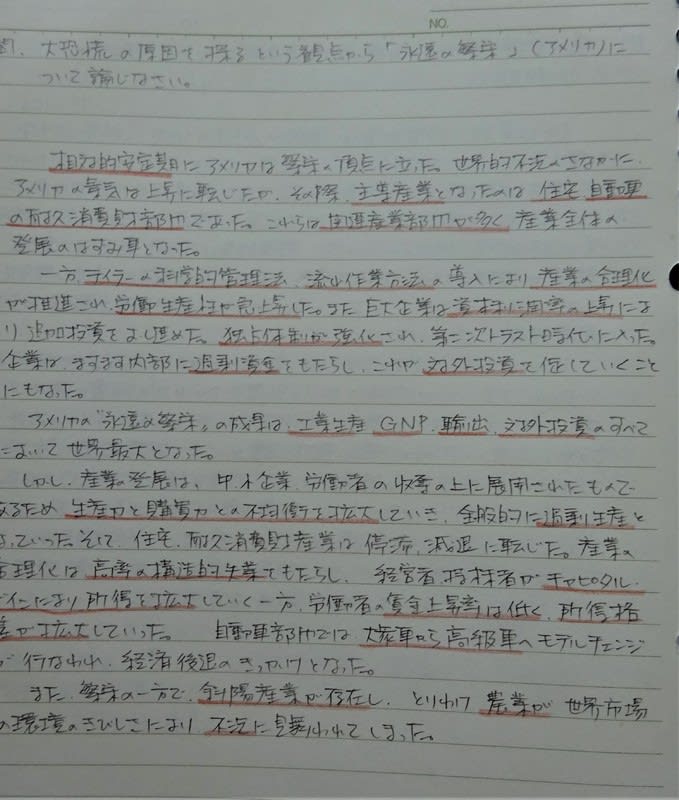 NO.
問. 大恐慌の原因を探るという観点から「永遠の繁栄」(アメリカ)に
ついて論じなさい。
相対的安定期にアメリカは繁栄の頂点に立った。世界的不況のさなかに
アメリカの景気は上昇に転じたが、その際、主導産業となったのは住宅、自動車
の耐久消費財部門であった。これらは関連産業部門が多く、産業全体の
発展のはずみ車となった。
一方、テイラーの科学的管理法、流れ作業方法の導入により産業の合理化
が推進され、労働生産性が上昇した。また巨大企業は資本利潤率の上昇によ
り追加投資をよし進めた。独占体制が強化され、第二次トラスト時代に入った。
企業は、ますます内部に過剰資金をもたらし、これが対外投資を促していくこと
にもなった。
アメリカの“永遠の繁栄”の成果は、工業生産、GNP、輸出、対外投資のすべて
において世界最大となった。
しかし、産業の発展は、中小企業、労働者の収奪の上に展開されたもので
あるため生産力と購買力との不均衡を拡大していき、全般的に過剰生産と
なっていった。そして、住宅、耐久消費財産業は停滞、減退に転じた。産業の
合理化は高率の構造的失業をもたらし、経営者、投株者がキャピタル・
ゲインにより所得を拡大していく一方、労働者の賃金上昇率は低く、所得格
差が拡大していった。 自動車部門では、大衆車から高級車へモデルチェンジ
が行なわれ、経済後退のきっかけとなった。
また、繁栄の一方で、斜陽産業が存在し、とりわけ農業が世界市場
の環境のきびしさにより不況に見舞われてしまった。